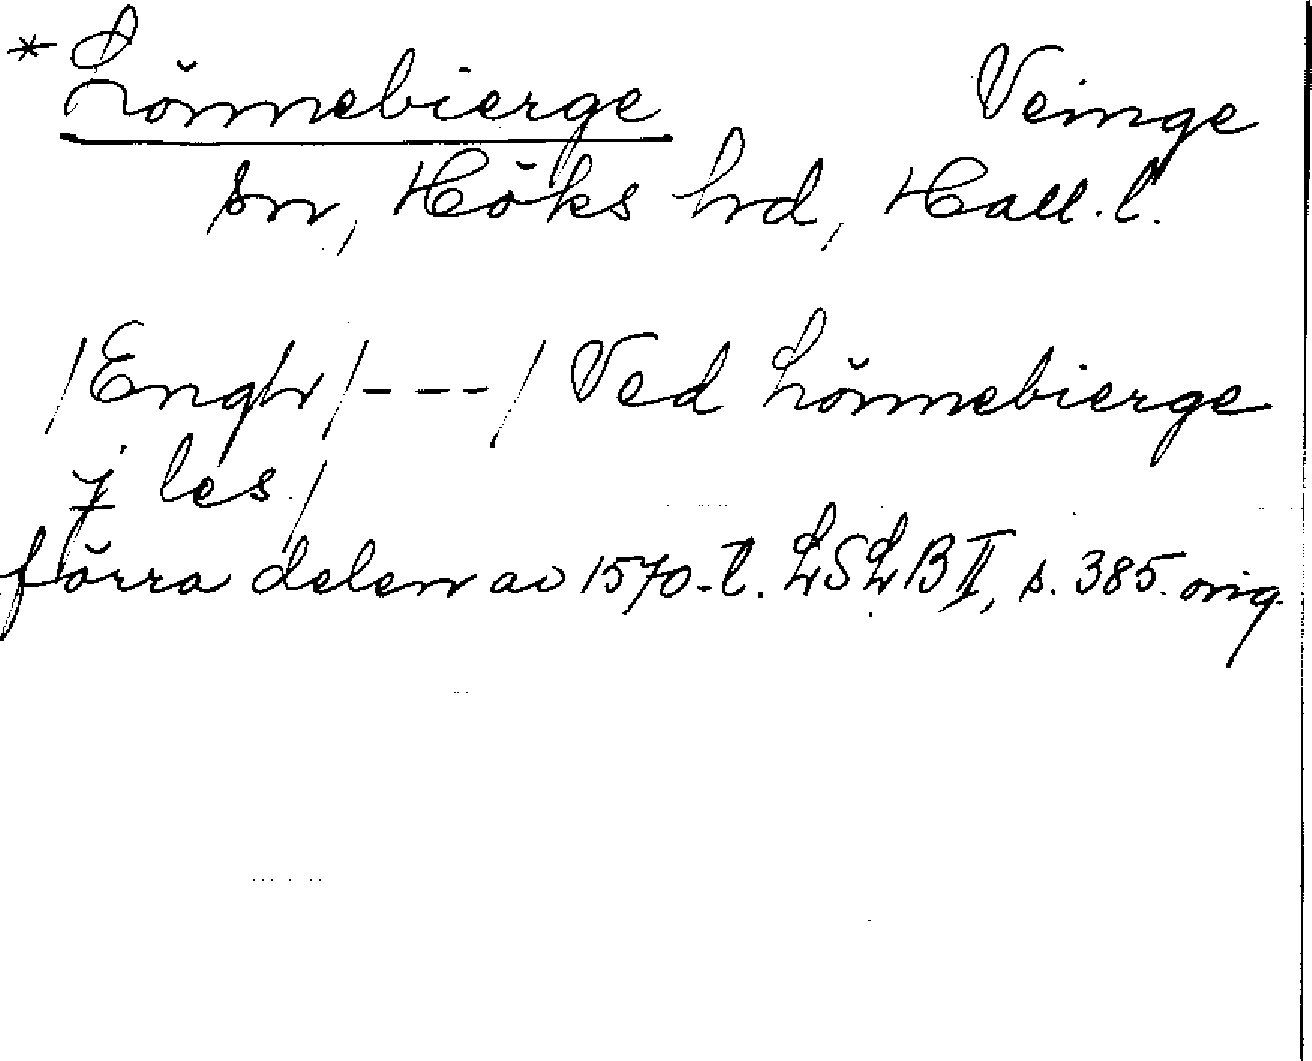 * Lönnebierge Veinge
sn, Höks hrd, Hall. l.
/Engh/---/ Ved Lönnebierge
j les/
förra delen av 1570-t. LSLB II, s. 385. orig.